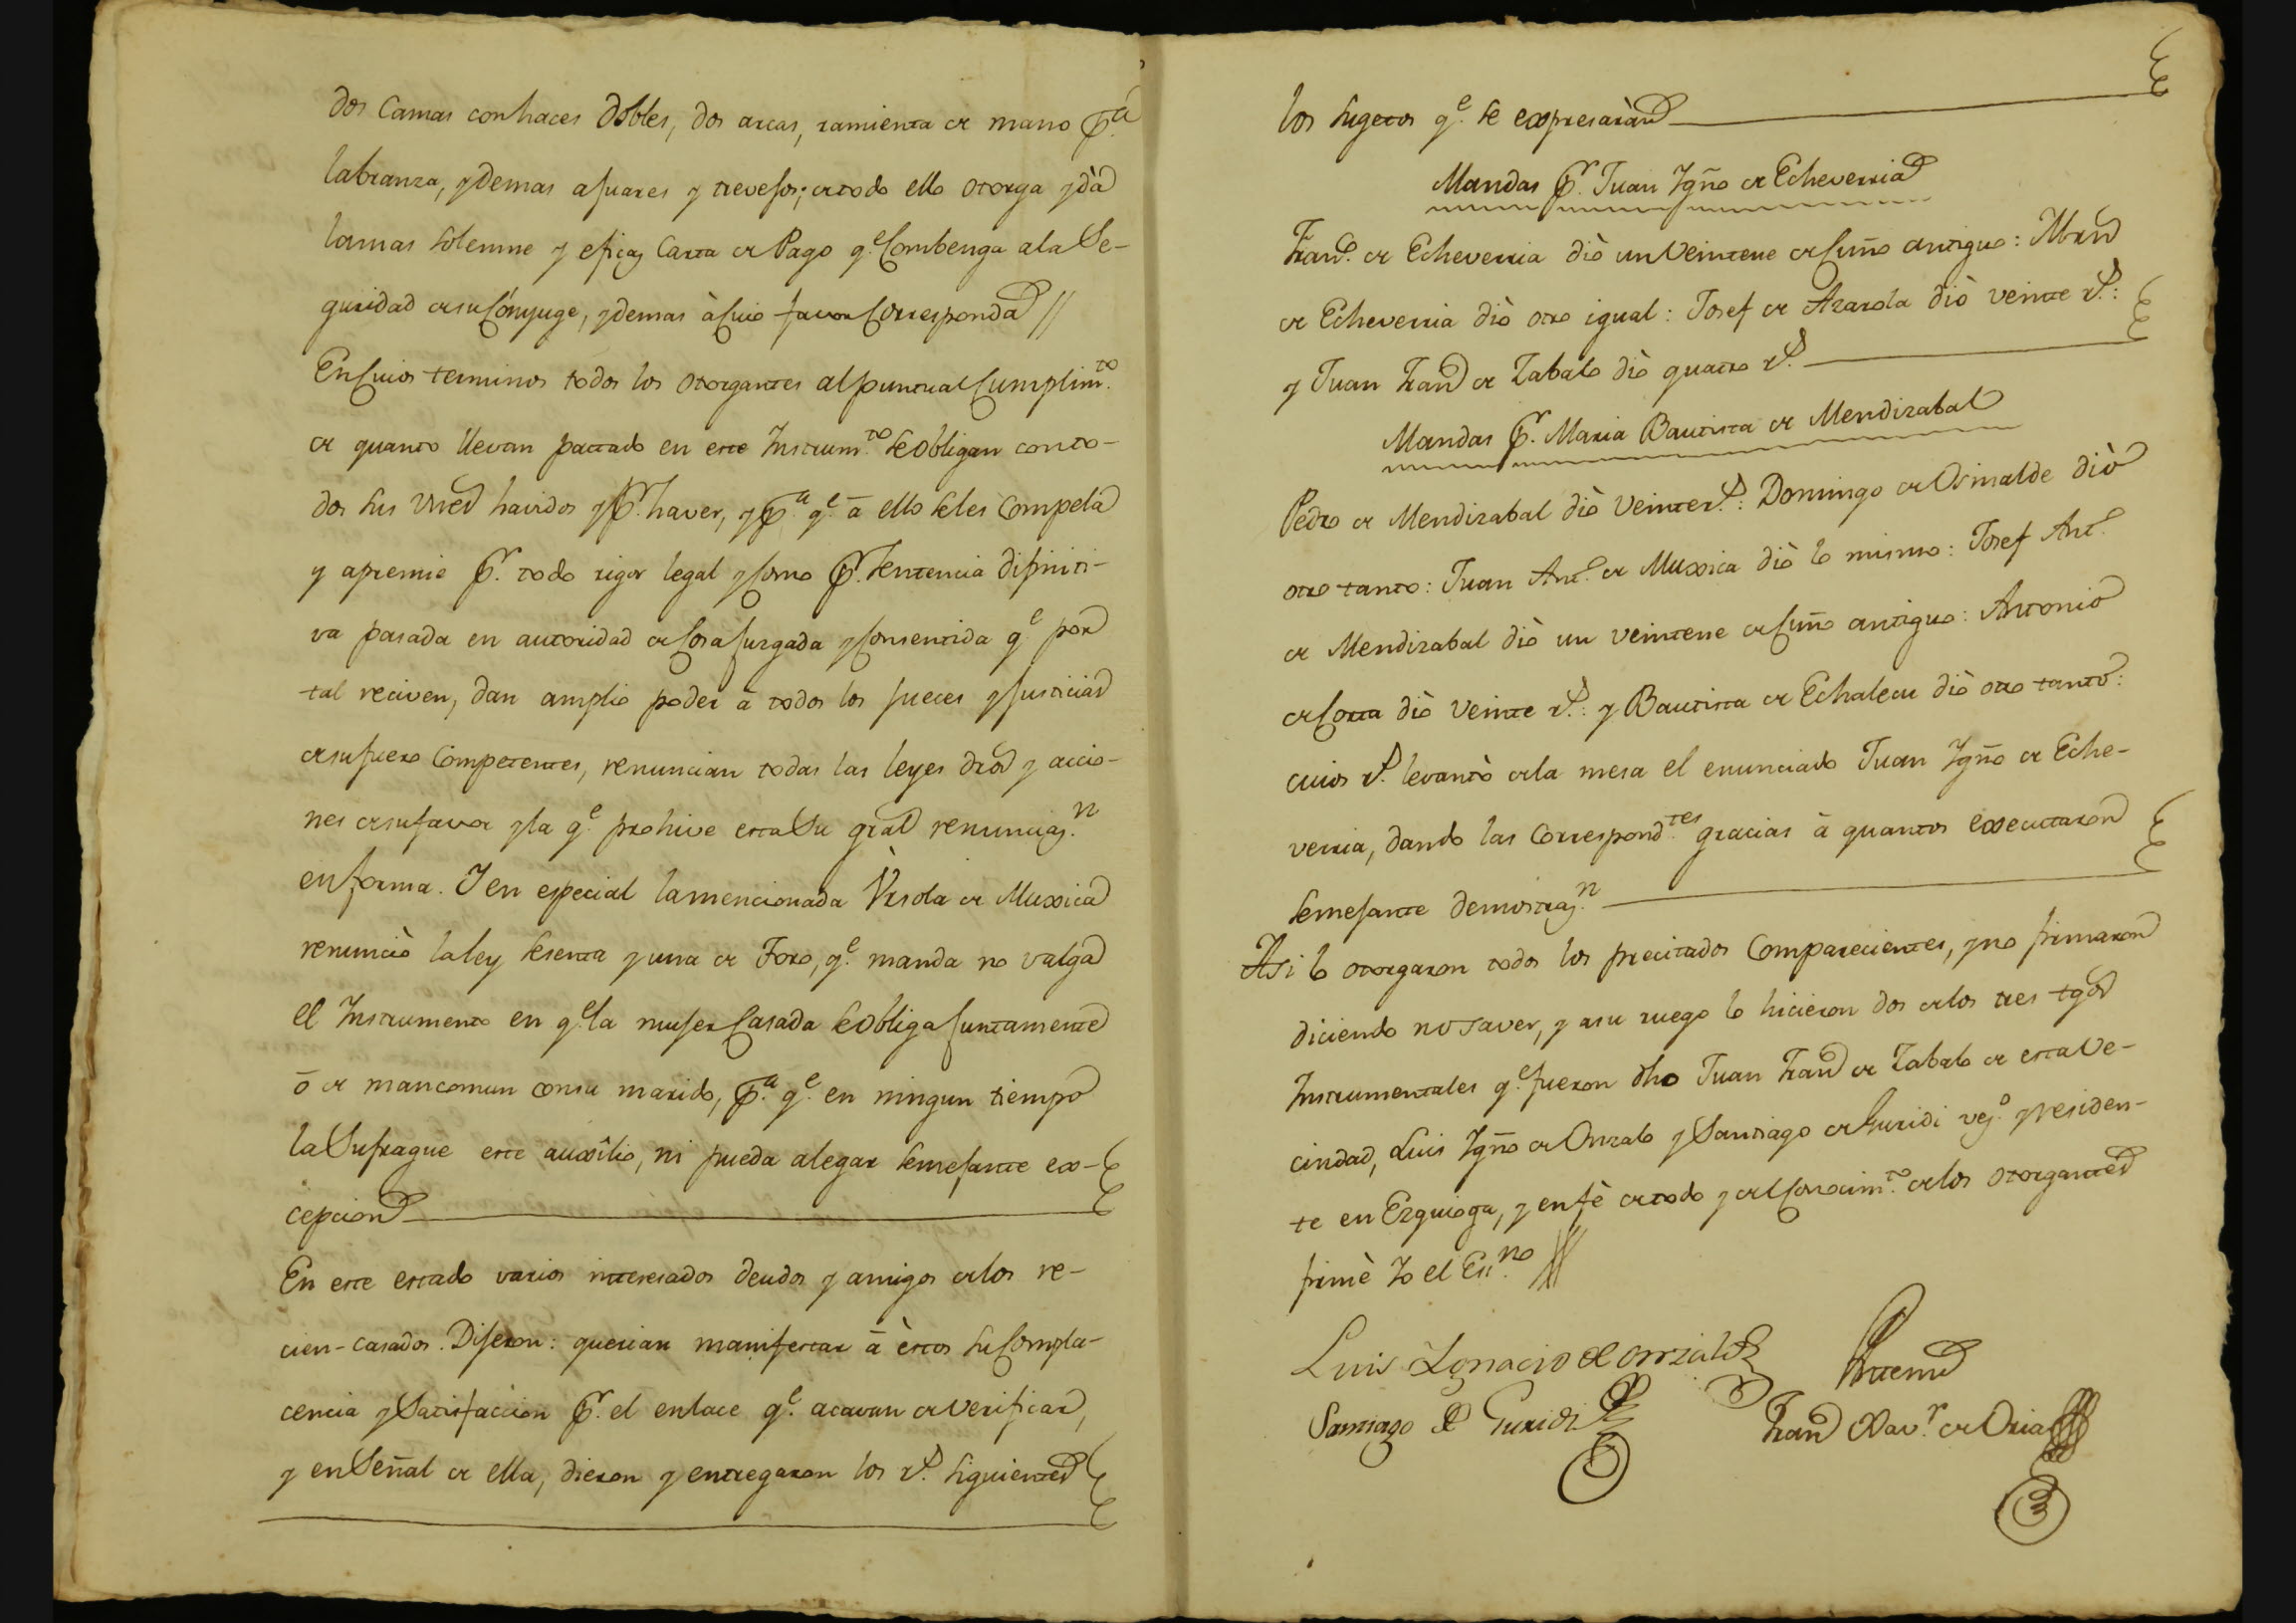 dos Camas con haces dobles, dos arcas, ramienta de mano p.ª
labranza, y demas ajuares y trevejos; de todo ello otorga y dà
la mas solemne y eficaz Carta de Pago q.e Combenga a la Se-
guridad de su Cónyuge, y demas à Cuio favor Corresponda //
En Cuios terminos todos los otorgantes al puntual Cumplim.to
de quanto llevan pactado en este Instrum.to se obligan con to-
dos sus vnes havidos y p.r haver, y p.a q.e à ello se les Compela
y apremie p.r todo rigor legal y Como p.r Sentencia difiniti-
va pasada en autoridad de Cosa Juzgada y Consentida q.e por
tal reciven, dan amplio poder à todos los Jueces y Justicias
de su fuero Competentes, renuncian todas las leyes dros y accio-
nes de su favor y la q.e prohive esta Su gral renunciaz.n
en forma. Y en especial la mencionada Vrsola de Muxica
renunciò la ley Sesenta y una de Foro, q.e manda no valga
el Instrumento en q.e la mujer Casada se obliga Juntamente
ò de mancomun con su marido, p.a q.e en ningun tiempo
la Sufrague este auxîlio, ni pueda alegar Semejante ex-
cepcion
En este estado varios interesados deudos y amigos de los re-
cien-casados. Dijeron: querian manifestar à èstos su Compla-
cencia y Satisfaccion p.r el enlace q.e acavan de verificar,
y en Señal de ella, dieron y entregaron los r.s siguientes
los Sugetos q.e se expresaràn
Mandas p.r Juan Ygño de Echeverria
Fran.co de Echeverria diò un Veintene de Cuño antiguo: Mrn
de Echeverria diò otro igual: Josef de Azarola diò veinte r.s:
y Juan Fran.co de Zabalo diò quatro r.s
Mandas p.r Maria Bautista de Mendizabal
Pedro de Mendizabal diò Veinte r.s: Domingo de Orinalde diò
otro tanto: Juan Ant.o de Muxica diò lo mismo: Josef Ant.o
de Mendizabal diò un veintene de Cuño antiguo: Antonio
de Corta diò Veinte r.s: y Bautista de Echalecu diò otro tanto:
cuios r.s levantò de la mesa el enunciado Juan Ygño de Eche-
verria, dando las Correspond.tes gracias à quantos executaron
Semejante demostraz.n
Asi lo otorgaron todos los precitados Comparecientes, y no firmaron
diciendo no saver, y a su ruego lo hicieron dos de los tres tgos
Instrumentales q.e fueron dho Juan Fran.co de Zabalo de esta Ve-
cindad, Luis Ygño de Onzalo y Santiago de Guridi vez.o y residen-
te en Ezquioga, y en fè de todo y del Conocim.to de los otorgantes
firmè Yo el Ess.no
Luis Ignacio de Onzalo
Antemi
Santiago de Guridi
Fran.co Xav.r de Oria